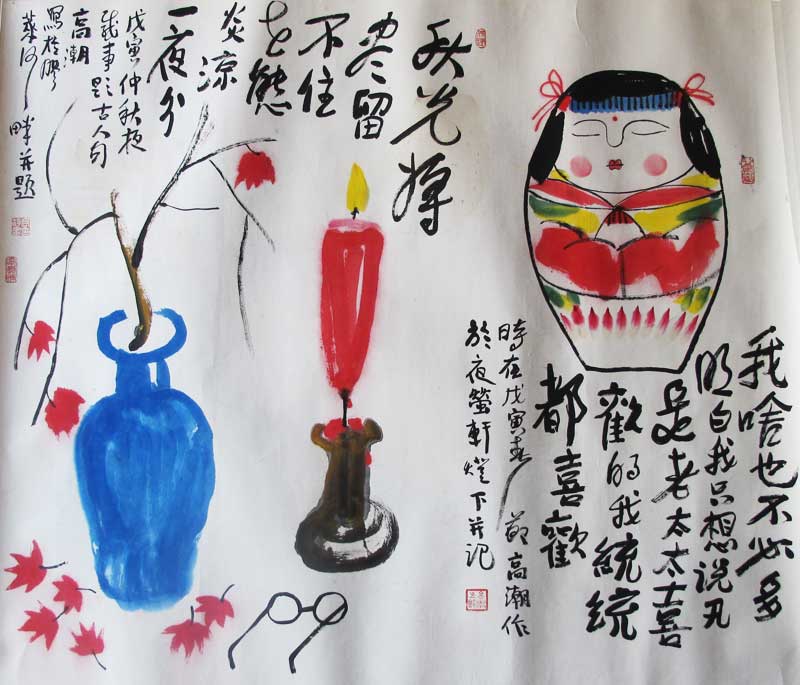 我啥也不必多
明白我只想说凡
是老太太喜
歡的我統統
都喜歡
時在戊寅春 高潮作
於夜螢軒燈下并记
秋光
尽留
不住
世態
炎涼
一夜分
戊寅仲秋
事題古人句
高潮
寫於膠
畔并題